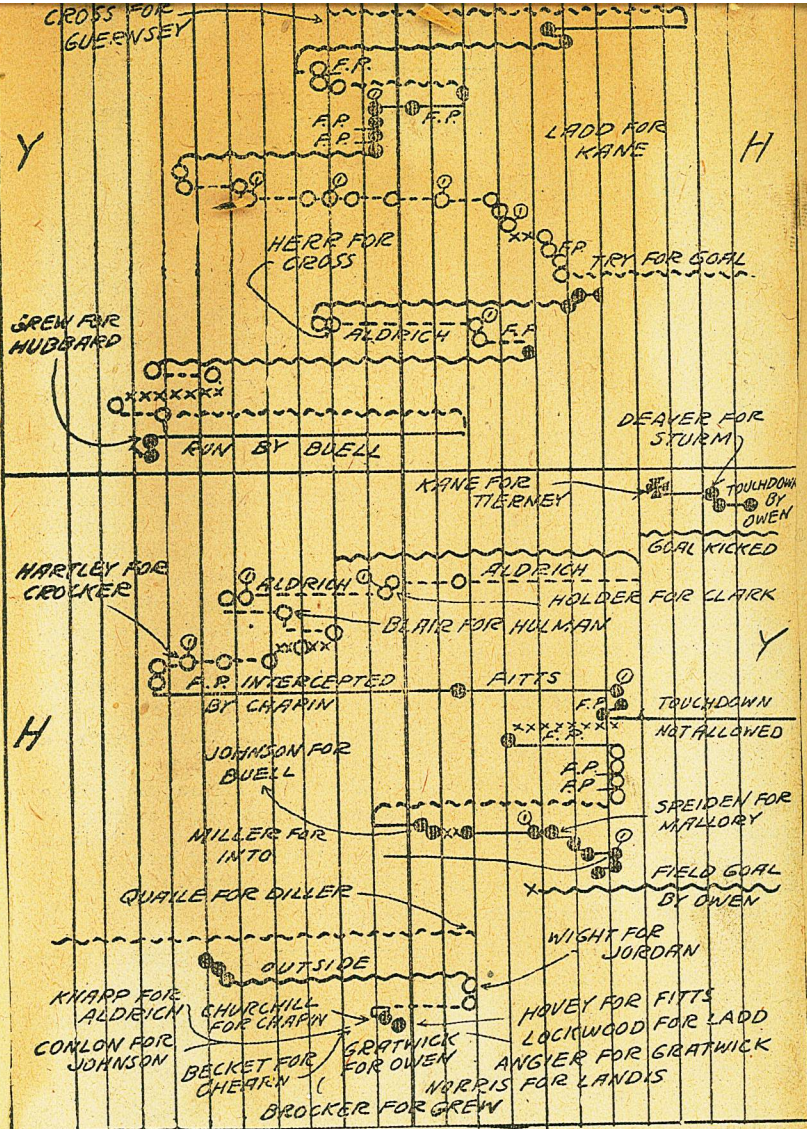 CROSS FOR
GUERNSEY
F.P.
F.P.
F.P.
F.P.
LADD FOR
KANE
Y
H
HERR FOR
CROSS
F.P.
TRY FOR GOAL
ALDRICH
F.P.
GREW FOR
HUBBARD
XXXXXXX
RUN BY BUELL
DEAVER FOR
STURM
KANE FOR
TIERNEY
TOUCHDOWN
BY
OWEN
GOAL KICKED
HARTLEY FOR
CROCKER
ALDRICH
ALDRICH
HOLDER FOR CLARK
BLAIR FOR HULMAN
Y
F.P. INTERCEPTED
BY CHAPIN
FITTS
F.P.
TOUCHDOWN
NOT ALLOWED
H
F.P.
JOHNSON FOR
BUELL
F.P.
F.P.
SPEIDEN FOR
MALLORY
MILLER FOR
INTO
FIELD GOAL
BY OWEN
QUAILE FOR DILLER
WIGHT FOR
JORDAN
OUTSIDE
KNAPP FOR
ALDRICH
CHURCHILL
FOR CHAPIN
HOVEY FOR FITTS
LOCKWOOD FOR LADD
CONLON FOR
JOHNSON
GRATWICK
FOR OWEN
ANGIER FOR GRATWICK
BECKET FOR
CHEARN
NORRIS FOR LANDIS
BROCKER FOR GREW